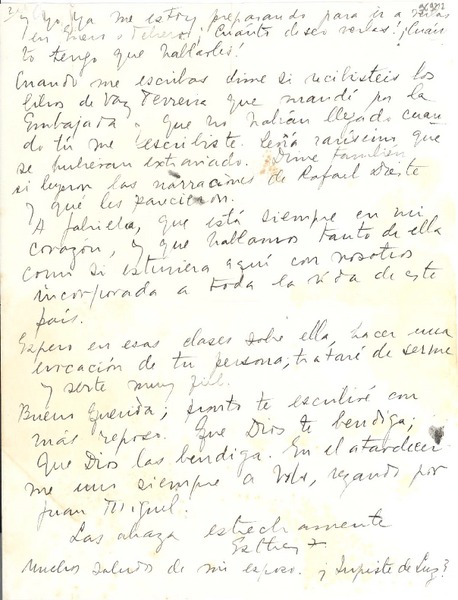 Yo ya me estoy preparando para ir a verlas
en Enero o Febrero, ¡Cuánto deseo verlas! ¡Cuán
to tengo que hablarles!
Cuando me escribas dime si recibisteis los
libros de Vaz Ferreira que mandé por la
Embajada y que no habían llegado cuan
do tú me escribiste. Sería rarísimo que
se hubieran extraviado. Dime también
si leyeron las narraciones de Rafael Dieste
y qué les parecieron.
A Gabriela, que está siempre en mi
corazón, y que hablamos tanto de ella
como si estuviera aquí con nosotros
incorporada a toda la vida de este
país.
Espero en esas clases sobre ella, hacer una
evocación de tu persona; trataré de serme
y serte muy fiel.
Bueno Querida; pronto te escribiré con
más reposo. Que Dios te bendiga;
Que Dios las bendiga. En el atardecer
me uno siempre a Uds, rogando por
Juan Miguel.
Las abraza estrechamente
Esther
Muchos saludos de mi esposo. ¿Supiste de Luz?